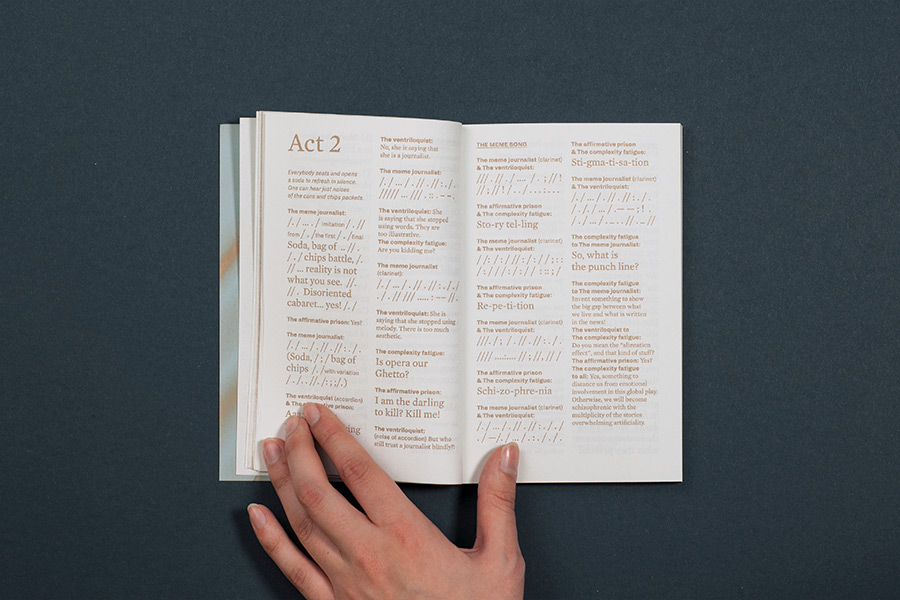 Act 2
Everybody seats and opens
a soda to refresh in silence.
One can hear just noises
of the cans and chips packets.
The meme journalist:
/. / ... / . imitation / . //
from / . / the first / . / final
Soda, bag of .. // .
/ . / chips battle, /.
// ... reality is not
what you see. //.
// . Disoriented
cabaret... yes! /. /
The affirmative prison: Yes?
The meme journalist:
/. / ... / . // . // : . / .
(Soda, / ; / bag of
chips / . / with variation
/ . / . . // . / : ; / .)
The ventriloquist (accordion)
& The affirmative prison:
The ventriloquist:
No, she is saying that
she is a journalist.
The meme journalist:
/. / ... / . // . // : . / .
///// ... /// . :: . – – .
The ventriloquist: She
is saying that she stopped
using words. They are
too illustrative.
The complexity fatigue:
Are you kidding me?
The meme journalist
(clarinet):
/. / ... / . // . // : . / .
. / . // /// ..... : – – // .
The ventriloquist: She is
saying that she stopped using
melody. There is too much
aesthetic.
The complexity fatigue:
Is opera our
Ghetto?
The affirmative prison:
I am the darling
to kill? Kill me!
The ventriloquist:
(noise of accordion) But who
still trust a journalist blindly?!
THE MEME SONG
The meme journalist (clarinet)
& The ventriloquist:
The affirmative prison
& The complexity fatigue:
Sto-ry tel-ling
The meme journalist (clarinet)
& The ventriloquist:
The affirmative prison
& The complexity fatigue:
Re-pe-ti-tion
The meme journalist (clarinet)
& The ventriloquist:
The affirmative prison
& The complexity fatigue:
Schi-zo-phre-nia
The meme journalist (clarinet)
& The ventriloquist:
The affirmative prison
& The complexity fatigue:
Sti-gma-ti-sa-tion
The meme journalist (clarinet)
& The ventriloquist:
The complexity fatigue
to The meme journalist:
So, what is
the punch line?
The complexity fatigue
to The meme journalist:
Invent something to show
the big gap between what
we live and what is written
in the news!
The ventriloquist to
The complexity fatigue:
Do you mean the “alienation
effect”, and that kind of stuff?
The affirmative prison: Yes?
The complexity fatigue
to all: Yes, something to
distance us from emotional
involvement in this global play.
Otherwise, we will become
schizophrenic with the
multiplicity of the stories
overwhelming artificiality.